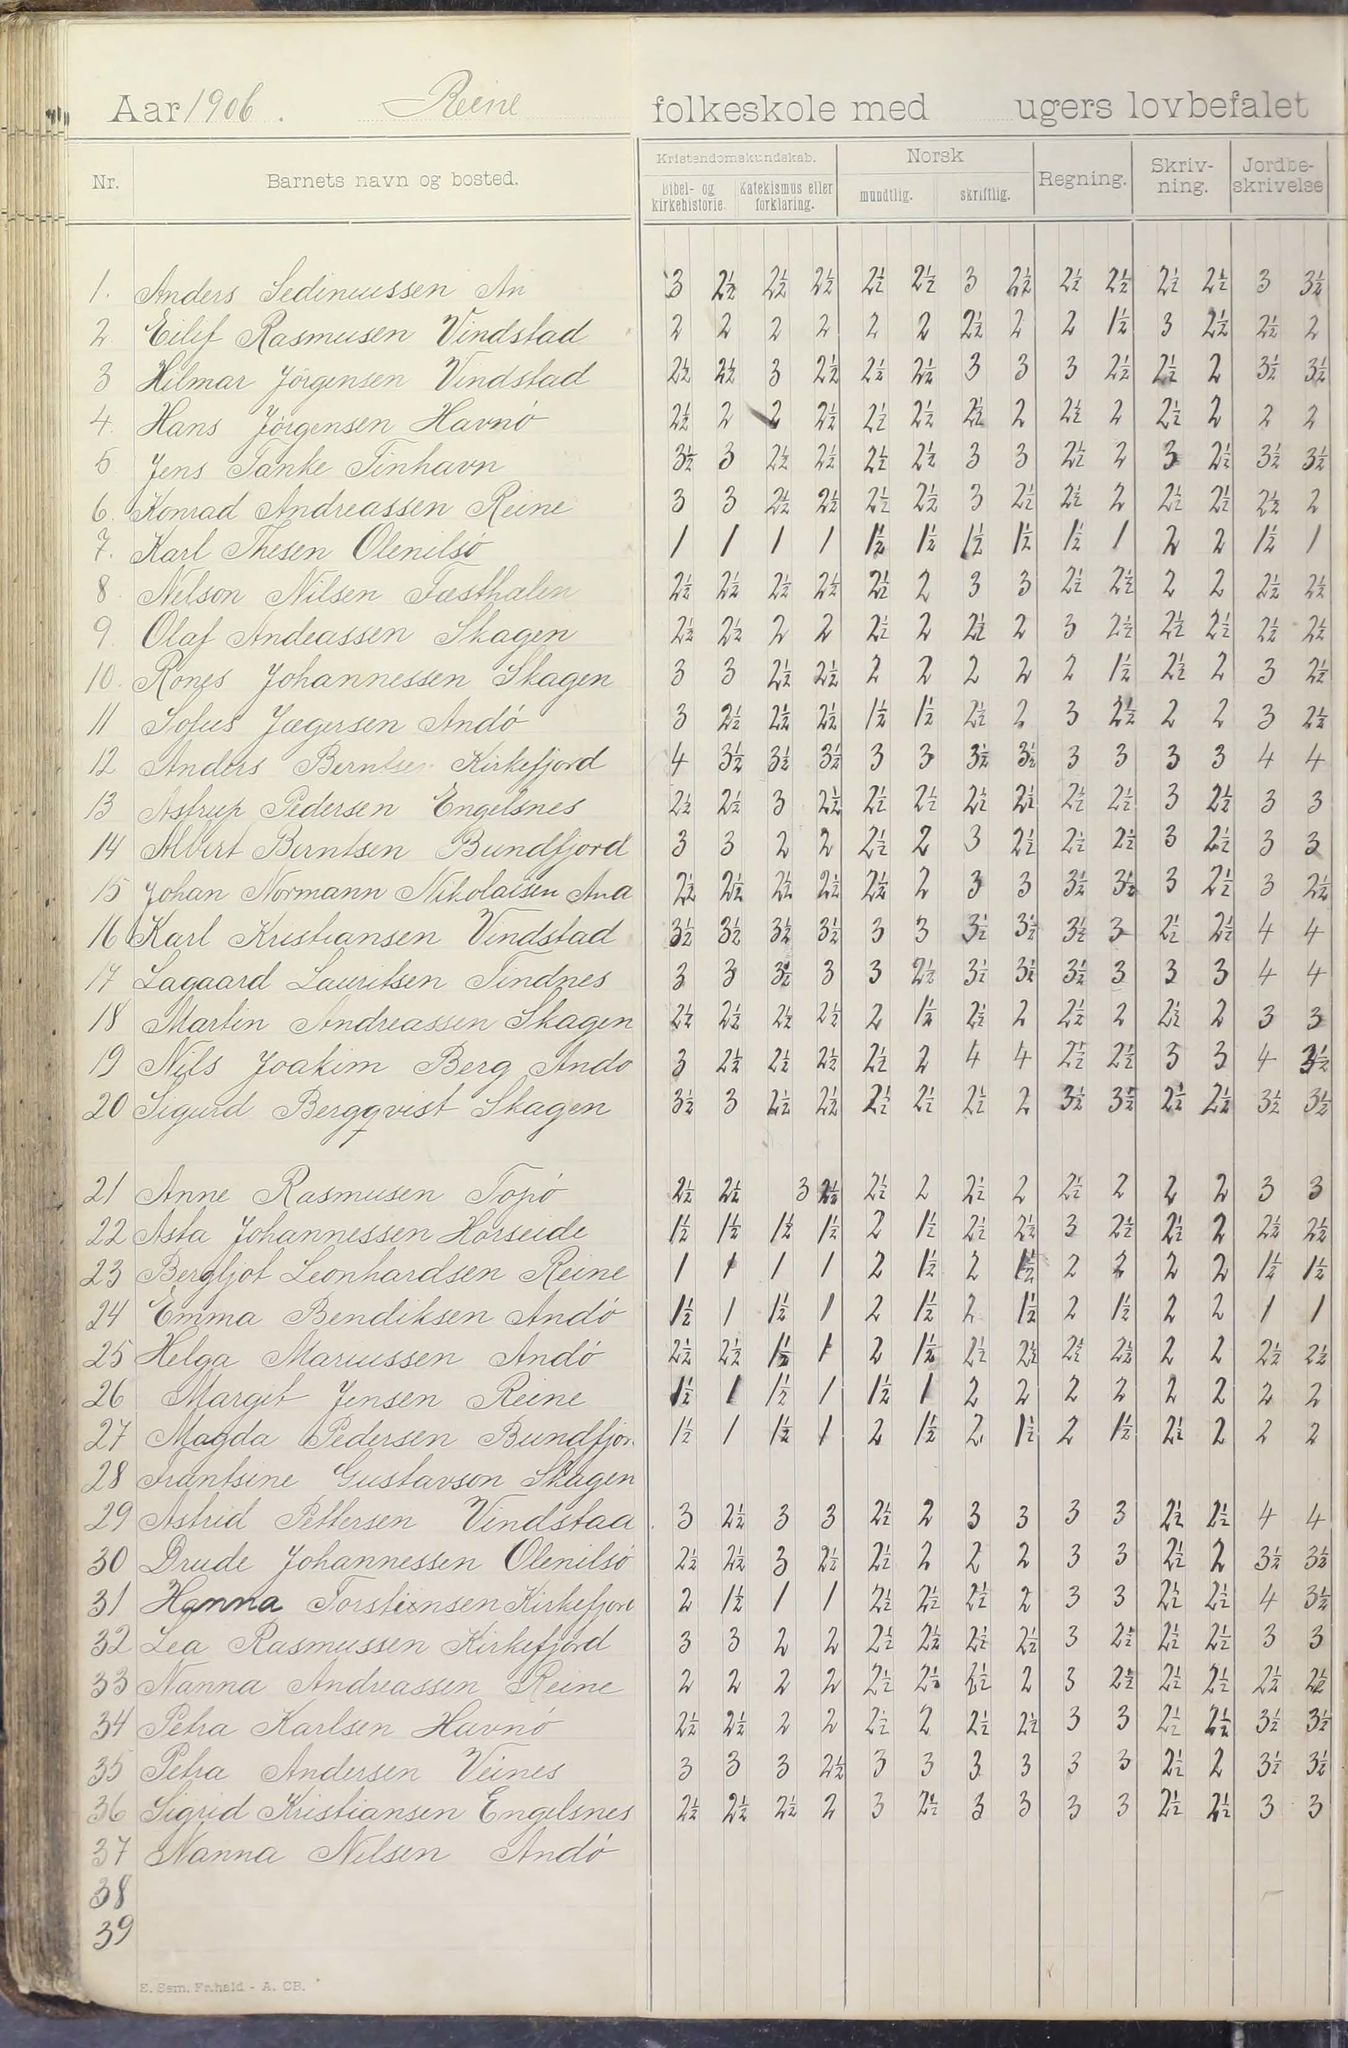 Aar 1906. Reine folkeskole med ugers lovbefalet
Nr. Barnets navn og bosted. Kristendomskundskab. Norsk Regning. Skriv-ning. Jordbe-skrivelse
Bibel- og kirkehistorie. Katekismus eller forklaring. mundtlig. skriftlig.
1. Anders Sedinussen An 3 2½ 2½ 2½ 2½ 2½ 3 2½ 2½ 2½ 2½ 2½ 3 3½
2 Eilif Rasmusen Vindstad 2 2 2 2 2 2 2½ 2 2 1½ 3 2½ 2½ 2
3 Hilmar Jörgensen Vindstad 2½ 2½ 3 2½ 2½ 2½ 3 3 3 2½ 2½ 2 3½ 3½
4. Hans Jörgensen Havnö 2½ 2 2 2½ 2½ 2½ 2½ 2 2½ 2 2½ 2 2 2
5 Jens Tanke Tinhavn 3½ 3 2½ 2½ 2½ 2½ 3 3 2½ 2 3 2½ 3½ 3½
6. Konrad Andreassen Reine 3 3 2½ 2½ 2½ 2½ 3 2½ 2½ 2 2½ 2½ 2½ 2
7. Karl Thesen Olenilsö 1 1 1 1 1½ 1½ 1½ 1½ 1½ 1 2 2 1½ 1
8 Nelson Nilsen 2½ 2½ 2½ 2½ 2½ 2 3 3 2½ 2½ 2 2 2½ 2½
9. Olaf Andeassen Skagen 2½ 2½ 2 2 2½ 2 2½ 2 3 2½ 2½ 2½ 2½ 2½
10. Rones Johannessen Skagen 3 3 2½ 2½ 2 2 2 2 2 1½ 2½ 2 3 2½
11 Sofus Jægersen Andö 3 2½ 2½ 2½ 1½ 1½ 2½ 2 3 2½ 2 2 3 2½
12 Anders Berntsen Kirkefjord 4 3½ 3½ 3½ 3 3 3½ 3½ 3 3 3 3 4 4
13 Astrup Pedersen Engelsnes 2½ 2½ 3 2½ 2½ 2½ 2½ 2½ 2½ 2½ 3 2½ 3 3
14 Albert Berntsen Bundfjord 3 3 2 2 2½ 2 3 2½ 2½ 2½ 3 2½ 3 3
15 Johan Normann Nikolaisen And 2½ 2½ 2½ 2½ 2½ 2 3 3 3½ 3½ 3 2½ 3 2½
16 Karl Kristiansen Vindstad 3½ 3½ 3½ 3½ 3 3 3½ 3½ 3½ 3 2½ 2½ 4 4
17 Lagaard Lauritsen Tindnes 3 3 3½ 3 3 2½ 3½ 3½ 3½ 3 3 3 4 4
18 Martin Andreassen Skagen 2½ 2½ 2½ 2½ 2 1½ 2½ 2 2½ 2 2½ 2 3 3
19 Nils Joakim Berg Ando 3 2½ 2½ 2½ 2½ 2 4 4 2½ 2½ 3 3 4 3½
20 Sigurd Bergqvist Skagen 3½ 3 2½ 2½ 2½ 2½ 2½ 2 3½ 3½ 2½ 2½ 3½ 3½
21 Anne Rasmusen Topö 2½ 2½ 3 2½ 2½ 2 2½ 2 2½ 2 2 2 3 3
22 Asta Johannessen Horseide 1½ 1½ 1½ 1½ 2 1½ 2½ 2½ 3 2½ 2½ 2 2½ 2½
23 Bergljot Leonhardsen Reine 1 1 1 1 2 1½ 2 1½ 2 2 2 2 1½ 1½
24 Emma Bendiksen Andö 1½ 1 1½ 1 2 1½ 2 1½ 2 1½ 2 2 1 1
25 Helga Mariussen Andö 2½ 2½ 1½ 1 2 1½ 2½ 2½ 2½ 2½ 2 2 2½ 2½
26 Margit Jensen Reine 1½ 1 1½ 1 1½ 1 2 2 2 2 2 2 2 2
27 Magda Pedersen Bundfjor 1½ 1 1½ 1 2 1½ 2 1½ 2 1½ 2½ 2 2 2
28 Frantsine Gustavson Skagen
29 Astrid Pettersen Vindstad 3 2½ 3 3 2½ 2 3 3 3 3 2½ 2½ 4 4
30 Drude Johannessen Olenilsö 2½ 2½ 3 2½ 2½ 2 2 2 3 3 2½ 2 3½ 3½
31 Hanna Torsteinsen Kirkefjord 2 1½ 1 1 2½ 2½ 2½ 2 3 3 2½ 2½ 4 3½
32 Lea Rasmussen Kirkefjord 3 3 2 2 2½ 2½ 2½ 2½ 3 2½ 2½ 2½ 3 3
33 Nanna Andreassen Reine 2 2 2 2 2½ 2½ 2½ 2 3 2½ 2½ 2½ 2½ 2½
34 Petra Karlsen Havnö 2½ 2½ 2 2 2½ 2 2½ 2½ 3 3 2½ 2½ 3½ 3½
35 Petra Andersen Veines 3 3 3 2½ 3 3 3 3 3 3 2½ 2 3½ 3½
36 Sigrid Kristiansen Engelsnes 2½ 2½ 2½ 2 3 2½ 3 3 3 3 2½ 2½ 3 3
37 Nanna Nilsen Andö
38
39